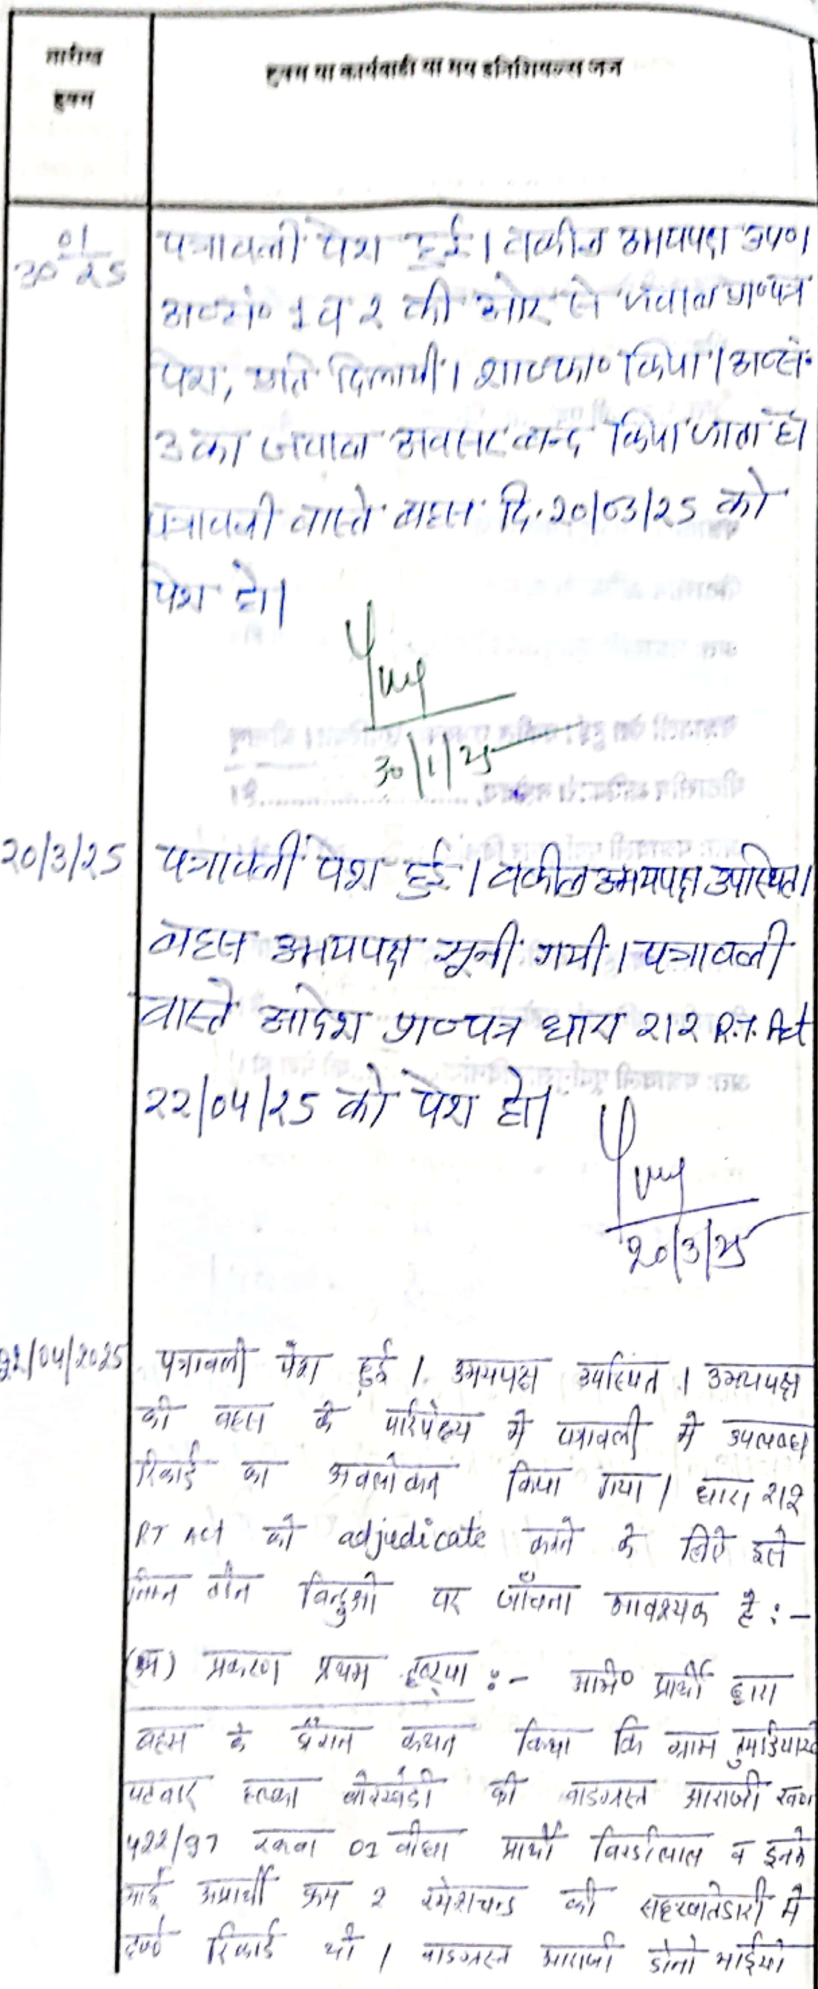 तारीख
हुक्म
हुक्म या कार्यवाही या मय इनिशियल्स जज
30 01/25
पत्रावली पेश हुई। वकील उभयपक्ष उप०।
अप्रा० सं० 1 व 2 की ओर से जवाब प्रा०पत्र
पेश, प्रति दिलायी। शा०फा० किया। अप्रा०सं०
3 का जवाब अवसर बन्द किया जाता है।
पत्रावली वास्ते बहस दि. 20/03/25 को
पेश हो।
30/1/25
20/3/25
पत्रावली पेश हुई। वकील उभयपक्ष उपस्थित।
बहस उभयपक्ष सूनी गयी। पत्रावली
वास्ते आदेश प्रा०पत्र धारा 212 R.T. Act
22/04/25 को पेश हो।
20/3/25
22/04/2025
पत्रावली पेश हुई। उभयपक्ष उपस्थित। उभयपक्ष
की बहस के परिपेक्ष्य में पत्रावली में उपलब्ध
रिकार्ड का अवलोकन किया गया। धारा 212
RT Act को adjudicate करने के लिए इसे
निम्न तीन बिन्दुओं पर जाँचना आवश्यक है :-
(अ) प्रकरण प्रथम दृष्टया :- अभि० प्रार्थी द्वारा
बहस के दौरान कथन किया कि ग्राम
पटवार हल्का बोरखेडी की वादग्रस्त आराजी
422/97 रकबा 01 बीघा प्रार्थी व इनके
भाई अप्रार्थी क्रम 2 रमेशचन्द की सहखातेदारी में
दर्ज रिकार्ड थी। वादग्रस्त आराजी दोनो भाईयो